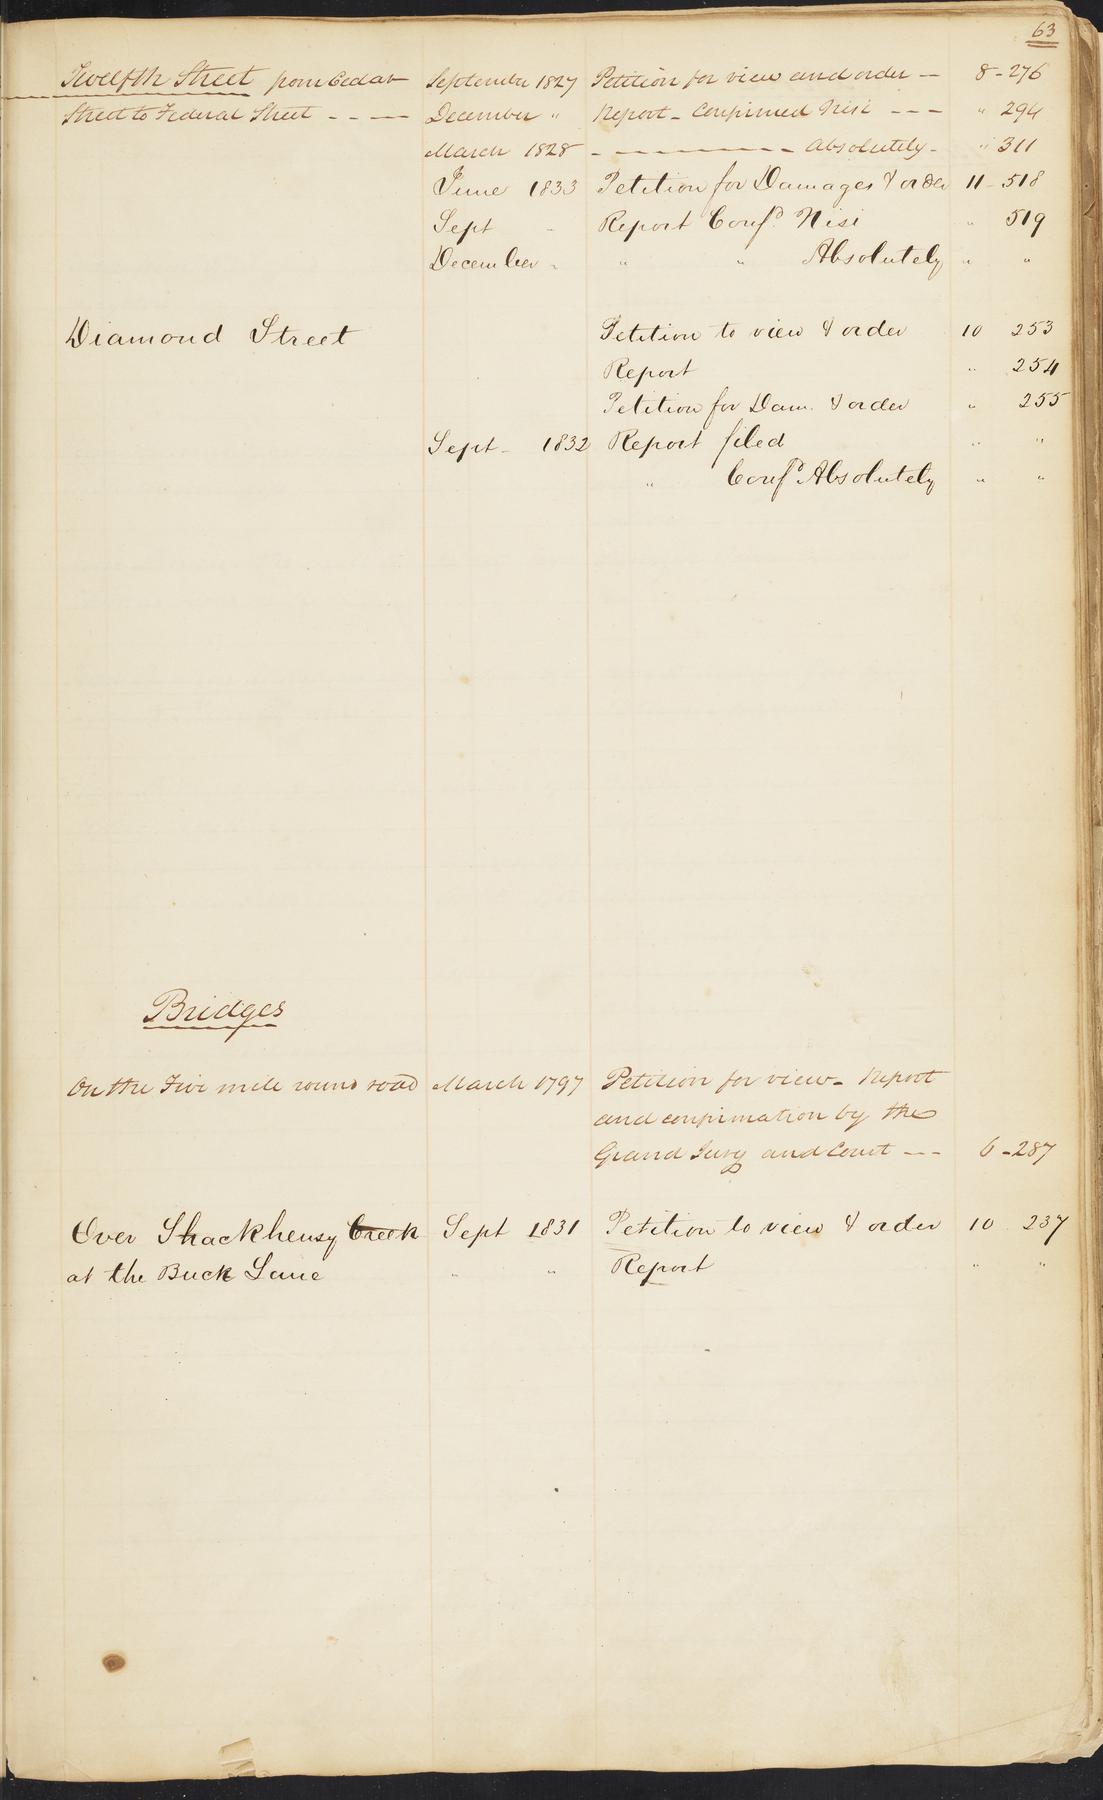 63
Twelfth Street from Cedar September 1827 Petition for view and order — 8-276
Street to Federal Street - - - - December " Report - Confirmed Nisi - - - " 294
March 1828 - - - - - - - - Absolutely - " 311
June 1833 Petition for Damages & order 11 - 518
Sept - Report Conf.d Nisi " 519
December " " " Absolutely " "
Diamond Street Petition to view & order 10 253
Report " 254
Petition for Dam. & order " 255
Sept - 1832 Report filed " "
" Conf.d Absolutely " "
Bridges
On the Five mile round road March 1797 Petition for view - Report
and confirmation by the
Grand Jury and Court - - - 6-287
Over Shackhensy Creek Sept 1831 Petition to view & order 10 237
at the Buck Lane " " Report " "